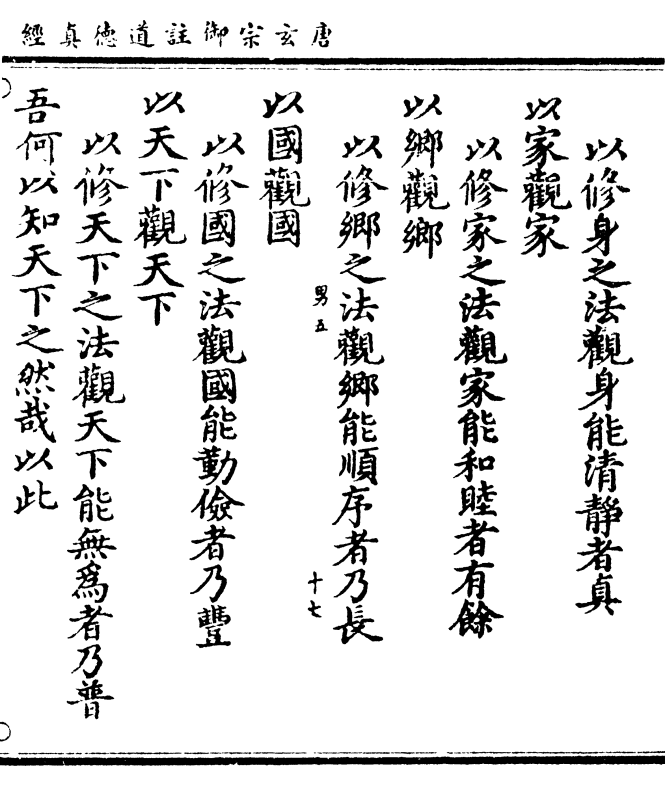 唐玄宗御註道德真經
以修身之法觀身能清靜者真
以家觀家
以修家之法觀家能和睦者有餘
以鄉觀鄉
以修鄉之法觀鄉能順序者乃長
男五
十七
以國觀國
以修國之法觀國能勤儉者乃豐
以天下觀天下
以修天下之法觀天下能無為者乃普
吾何以知天下之然哉以此